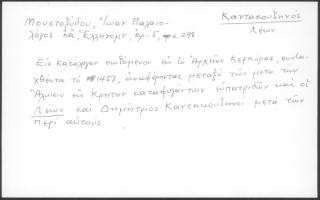 Μουστοξύδου, Ἰωάν. Παλαιο-
λόγος ἐν Ἑλληνομν. ἀρ. 5, σελ. 298
Καντακουζηνός
Λέων
Εἰς κατάλογον σωζόμενον ἐν τῷ Ἀρχείῳ Κερκύρας, συντα-
χθέντα τὸ 1457, ἀναφέρονται μεταξὺ τῶν μετὰ τὴν
Ἅλωσιν ἐν Κρήτῃ καταφυγόντων εὐπατριδῶν καὶ οἱ
Λέων καὶ Δημήτριος Καντακουζηνοὶ μετὰ τῶν
περὶ αὐτούς.